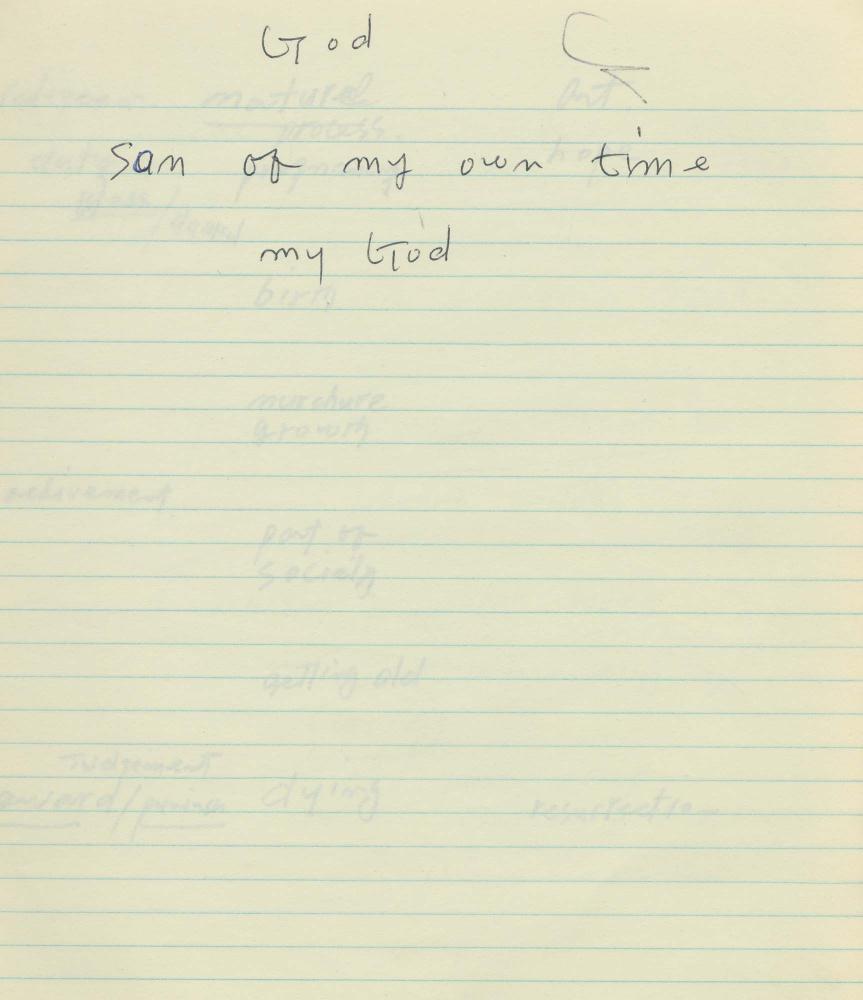 God
San of my own time
my God
process
birth
nurchure
growth
achivement
part of
society
getting old
Judgement
dying
resurrection